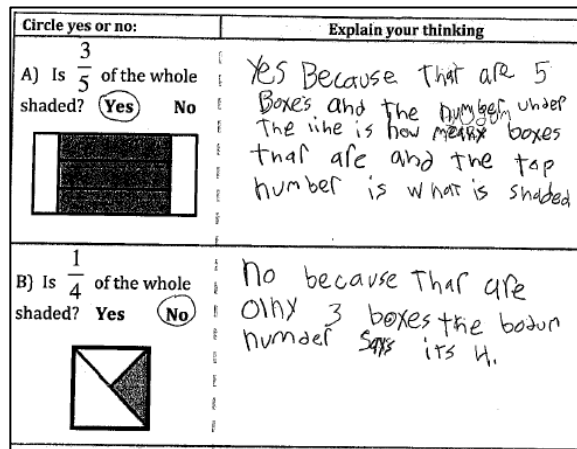 Circle yes or no:
Explain your thinking
A) Is 3/5 of the whole
shaded? Yes No
Yes Because That are 5
Boxes and the number under
The line is how meany boxes
thar are and the top
number is what is shaded
B) Is 1/4 of the whole
shaded? Yes No
no because Thar are
olny 3 boxes the bodum
numder says its 4.